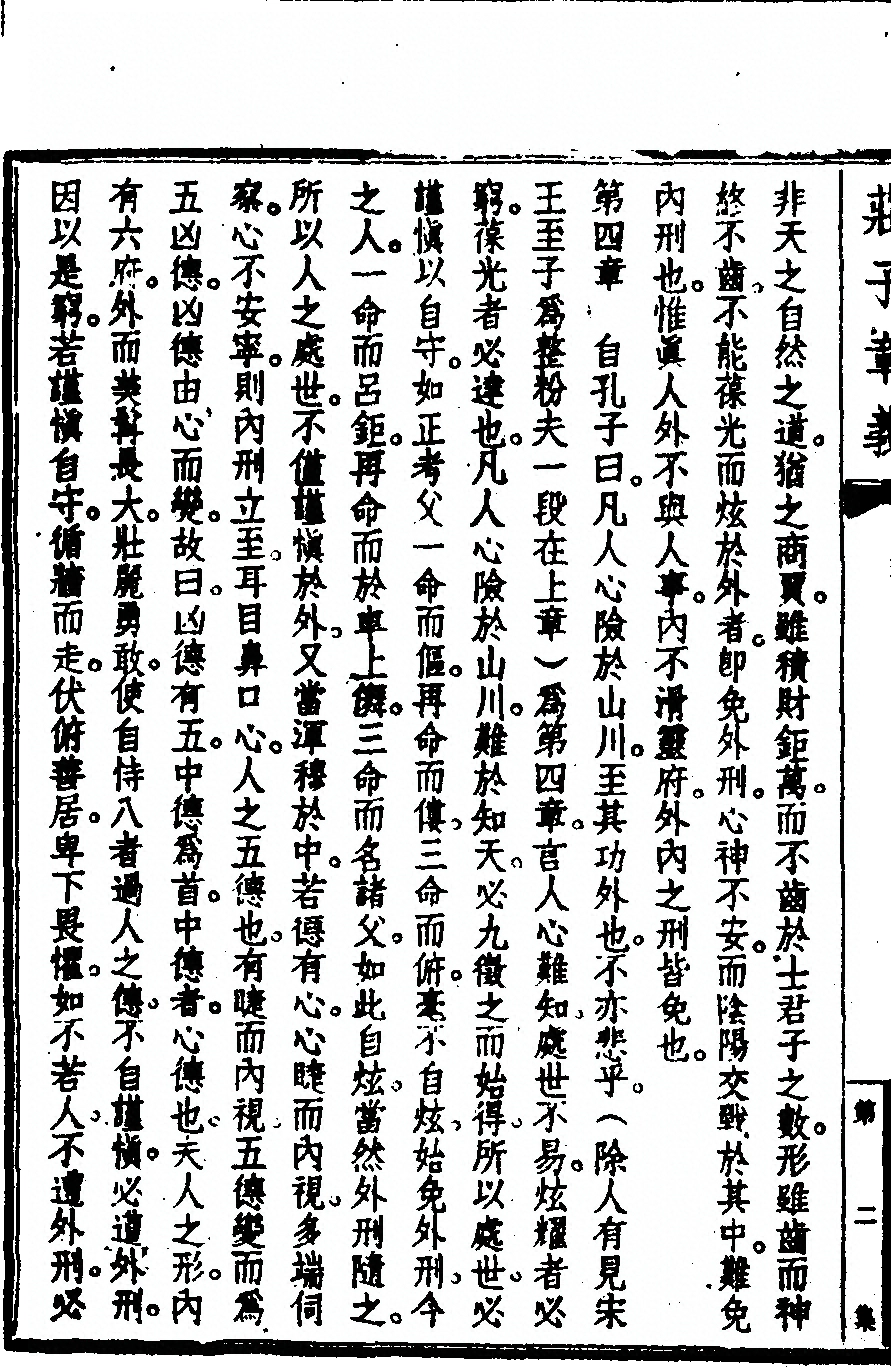 莊子章義
第二集
非天之自然之道。猶之商賈。雖積財鉅萬。而不齒於士君子之數。形雖齒而神
終不齒。不能葆光而炫於外者。卽免外刑。心神不安。而陰陽交戰於其中。難免
內刑也。惟眞人外不與人事。內不滑靈府。外內之刑皆免也。
第四章　自孔子曰。凡人心險於山川。至其功外也。不亦悲乎。（除人有見宋
王至子爲整粉夫一段在上章）爲第四章。言人心難知。處世不易。炫耀者必
窮。葆光者必達也。凡人心險於山川。難於知天。必九徵之而始得。所以處世。必
謹愼以自守。如正考父一命而傴。再命而僂。三命而俯。毫不自炫。始免外刑。今
之人。一命而呂鉅。再命而於車上儛。三命而名諸父。如此自炫。當然外刑隨之。
所以人之處世。不僅謹愼於外。又當渾穆於中。若德有心。心睫而內視。多端伺
察。心不安寧。則內刑立至。耳目鼻口心。人之五德也。有睫而內視。五德變而爲
五凶德。凶德由心而變。故曰。凶德有五。中德爲首。中德者。心德也。夫人之形。內
有六府。外而美髯長大。壯麗勇敢。使自恃八者過人之德。不自謹愼。必遭外刑。
因以是窮。若謹愼自守。循牆而走。伏俯善居。卑下畏懼。如不若人。不遭外刑。必